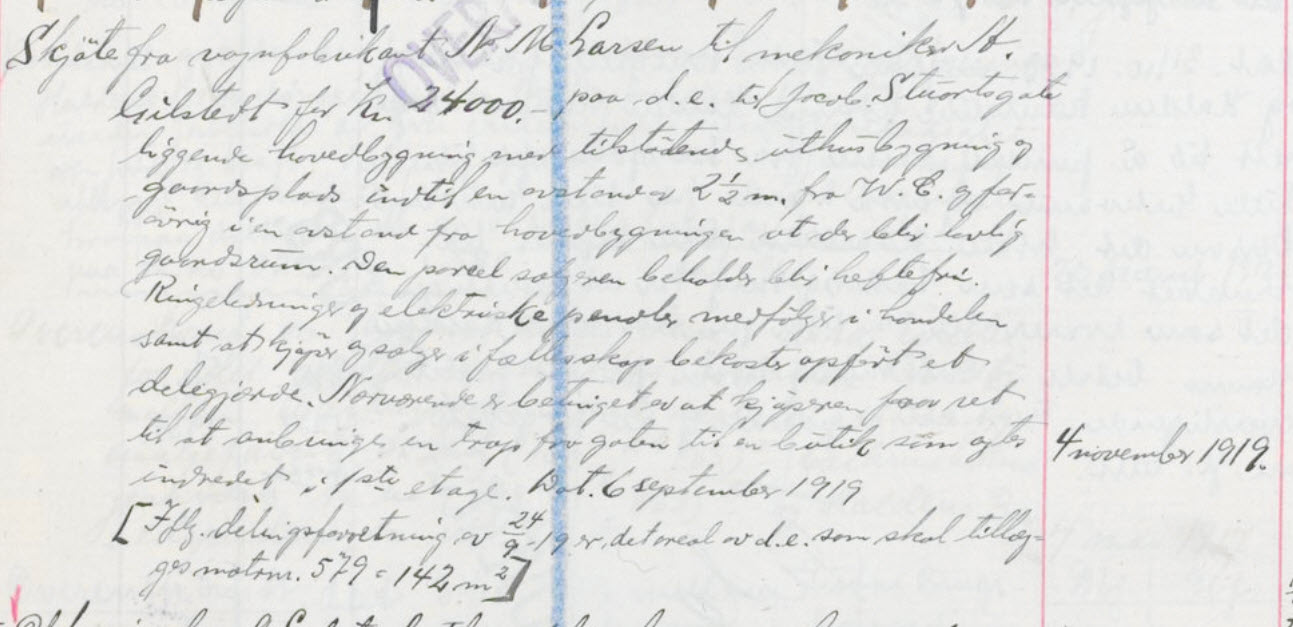 Skjöte fra vognfabrikant N. M. Larsen til mekaniker A.
Gilstedt for Kr. 24000.- paa d.e. til Jacob Stuartsgate
liggende hovedbygning med tilstötende uthusbygning og
gaardsplads indtil en avstand av 2½ m. fra W.C. og for-
övrig i en avstand fra hovedbygningen at der blir lovlig
gaardsrum. Den parcel sælgeren beholder blir heftefri.
Ringeledninger og elektriske pendler medfølger i handelen
samt at kjøper og sælger i fællesskap bekoster opfört et
delegjerde. Nærværende er betinget av at kjøperen faar ret
til at anbringe en trap fra gaten til en butik som agtes
indredet i 1ste etage. Dat. 6 september 1919
4 november 1919.
[Iflg. delingsforretning av 24/9-19 er det areal av d.e. som skal tillæg-
ges matrnr. 579 = 142 m²]
OVER